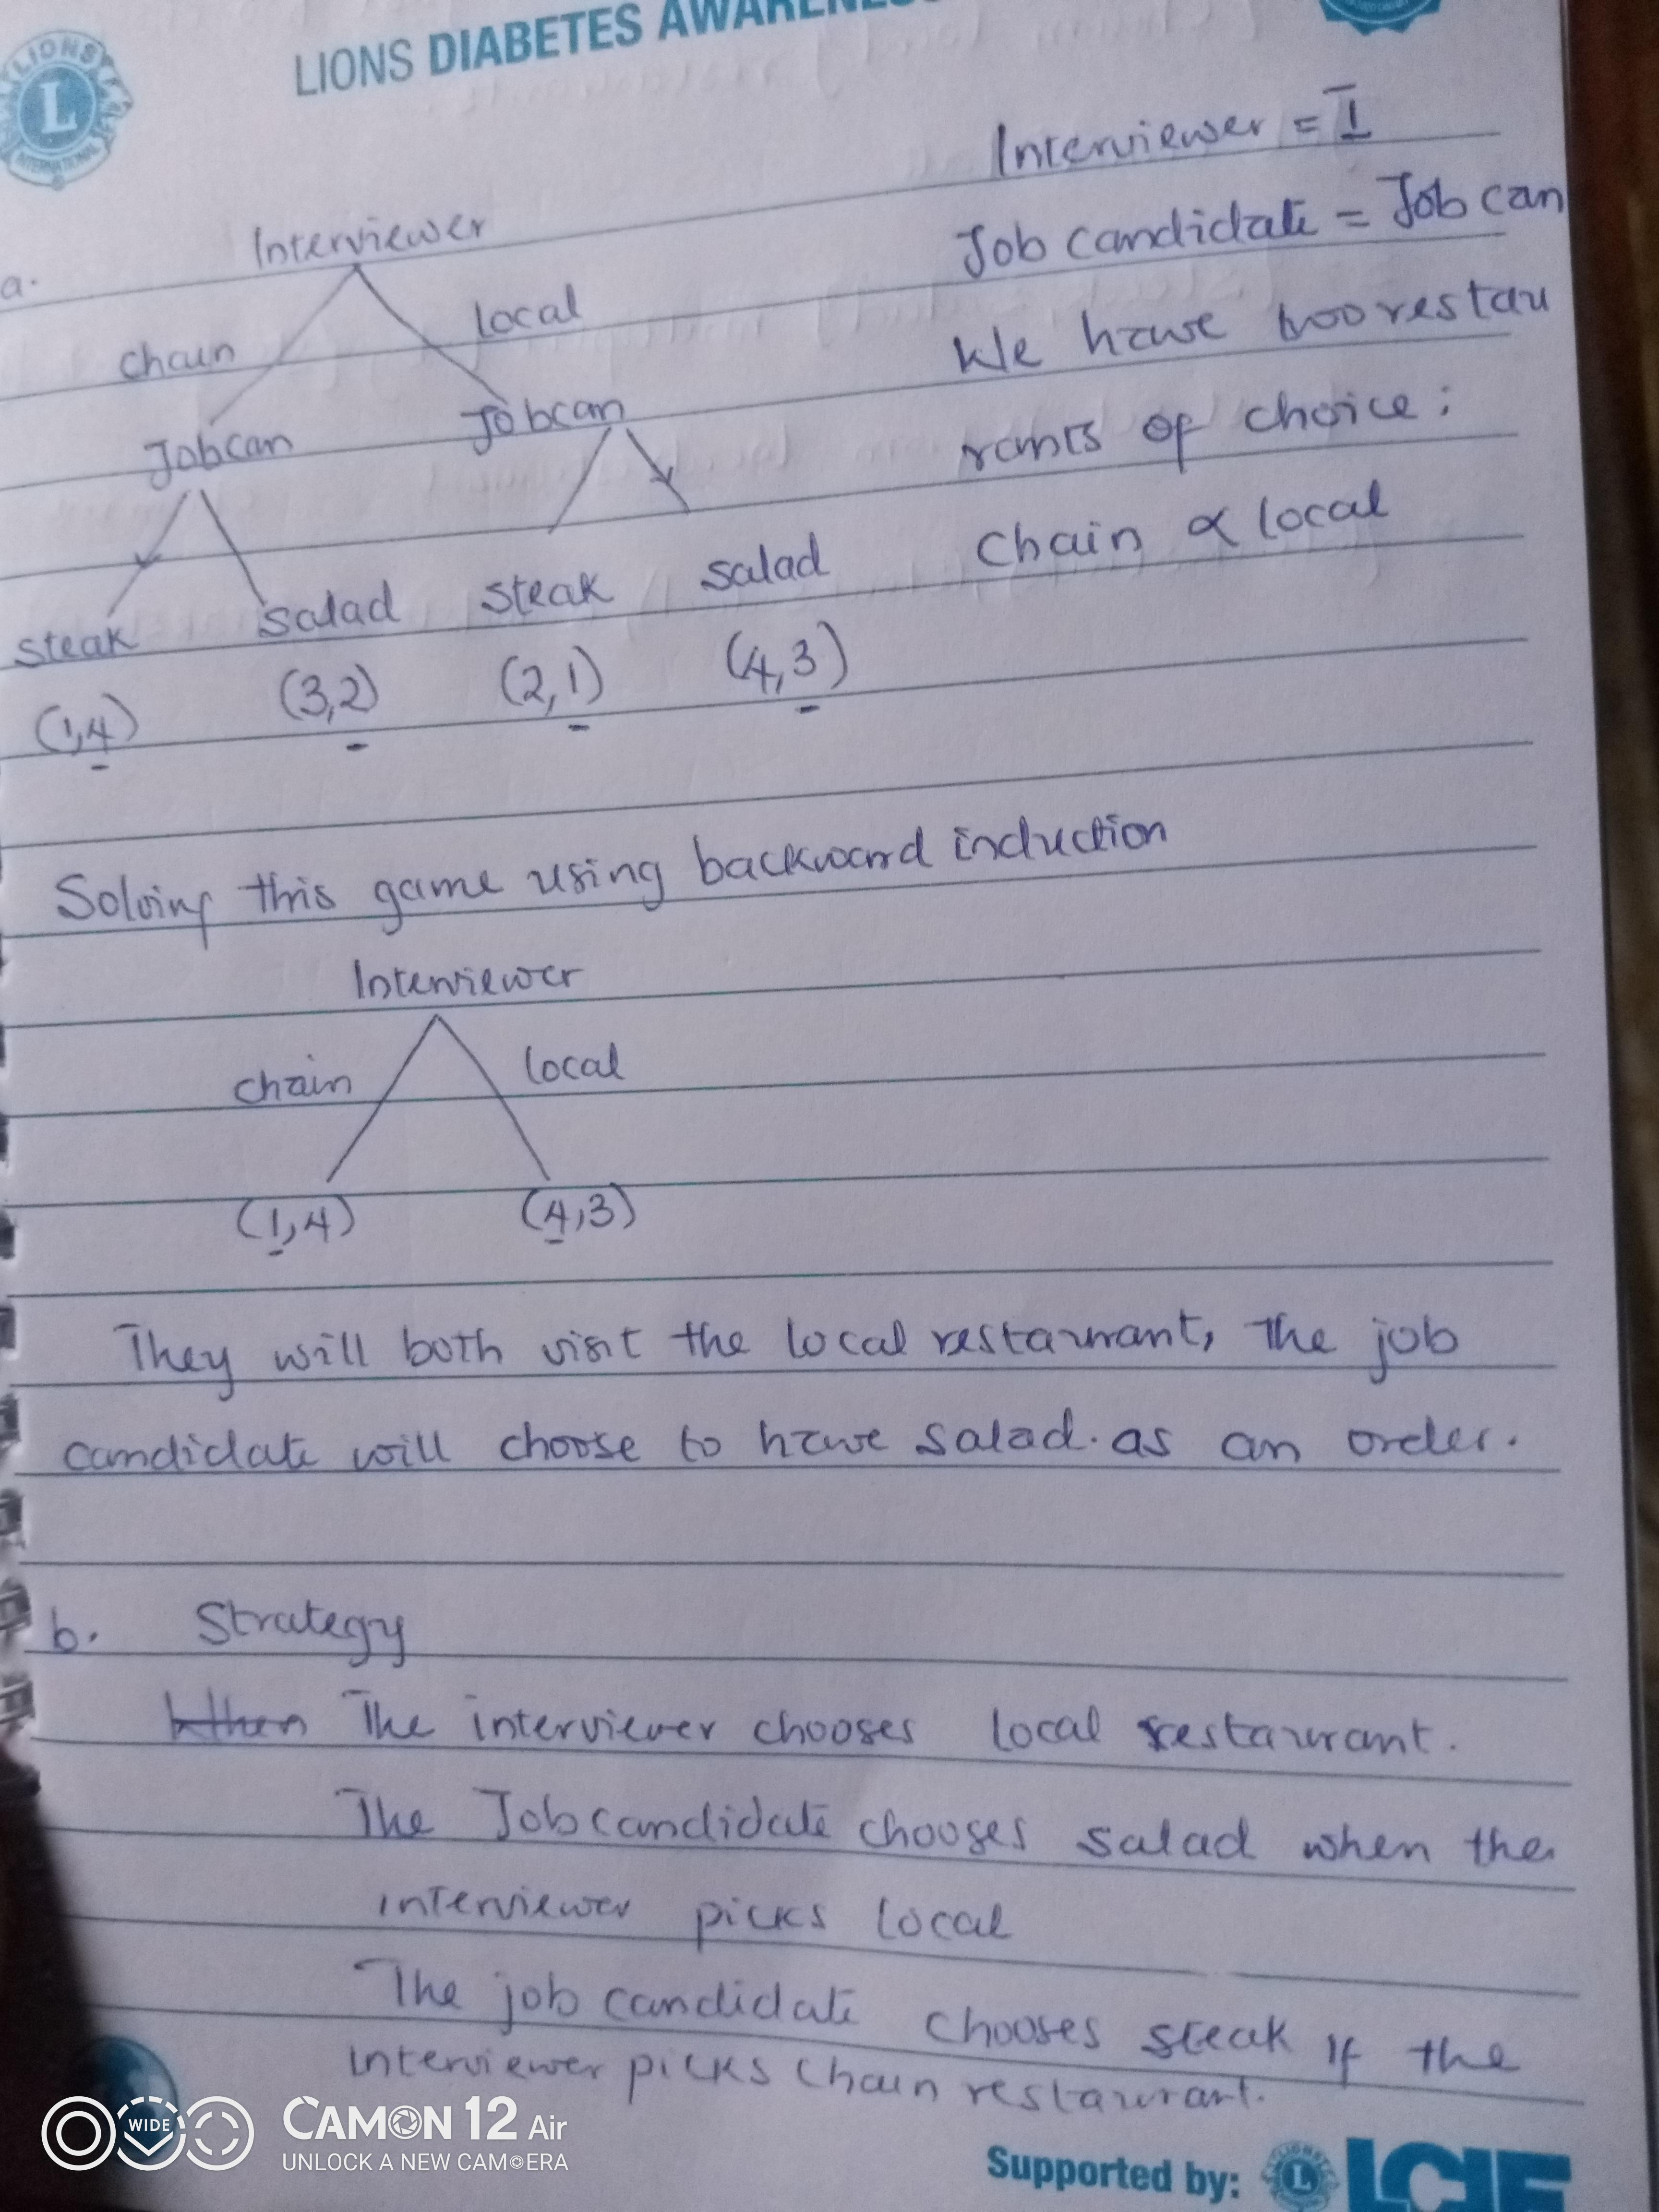 LIONS DIABETES AWARENESS
LIONS
L
INTERNATIONAL
Interviewer = I
Job candidate = Job can
We have two restau
rants of choice:
Chain & local
a.
Interviewer
chain
local
Jobcan
Jobcan
steak
salad
steak
salad
(1,4)
(3,2)
(2,1)
(4,3)
Solving this game using backward induction
Interviewer
chain
local
(1,4)
(4,3)
They will both visit the local restaurant, the job
candidate will choose to have salad. as an order.
b. Strategy
When The interviewer chooses local restaurant.
The Job candidate chooses salad when the
interviewer picks local
The job candidate chooses steak if the
interviewer picks chain restaurant.
WIDE
CAMON 12 Air
UNLOCK A NEW CAMERA
Supported by:
LIONS
L
LCIF